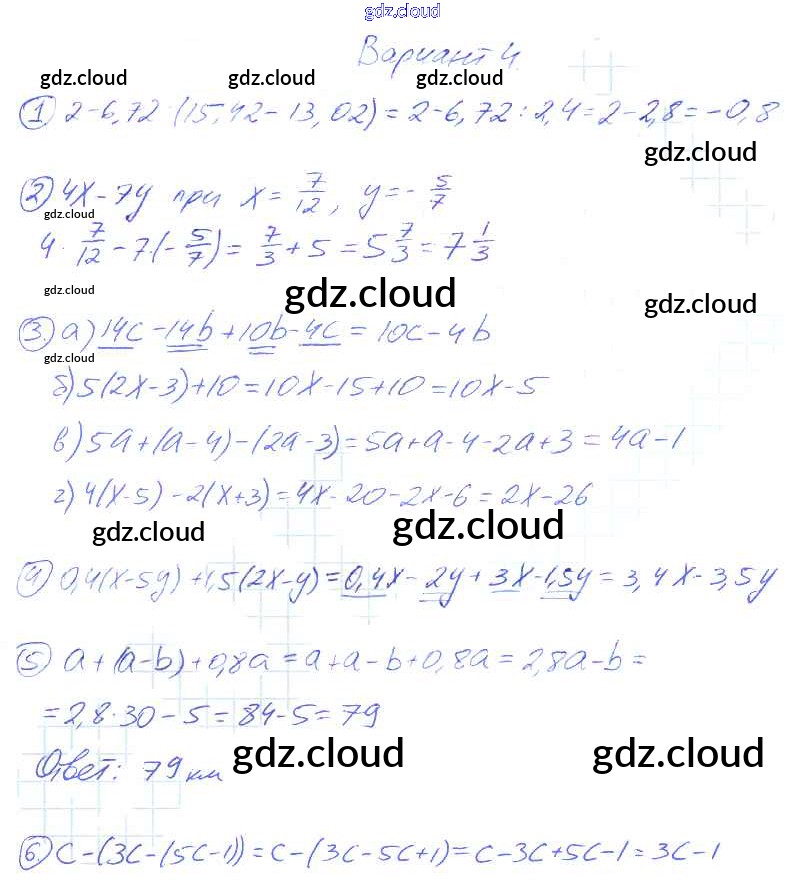 gdz.cloud
Вариант 4
gdz.cloud gdz.cloud gdz.cloud
① 2-6,72 : (15,42-13,02) = 2-6,72:2,4=2-2,8=-0,8
gdz.cloud
② 4x-7y при x = 7/12, y = - 5/7
gdz.cloud
4 · 7/12 - 7·(- 5/7) = 7/3 + 5 = 5 7/3 = 7 1/3
gdz.cloud gdz.cloud gdz.cloud
③ а) 14c - 14b + 10b - 4c = 10c - 4b
gdz.cloud
б) 5(2x-3)+10 = 10x-15+10 = 10x-5
в) 5a+(a-4)-(2a-3) = 5a+a-4-2a+3 = 4a-1
г) 4(x-5)-2(x+3) = 4x-20-2x-6 = 2x-26
gdz.cloud gdz.cloud
④ 0,4(x-5y)+1,5(2x-y) = 0,4x-2y+3x-1,5y = 3,4x-3,5y
⑤ a+(a-b)+0,8a = a+a-b+0,8a = 2,8a-b =
= 2,8·30-5 = 84-5 = 79
Ответ: 79 км
gdz.cloud gdz.cloud
⑥ c-(3c-(5c-1)) = c-(3c-5c+1) = c-3c+5c-1 = 3c-1